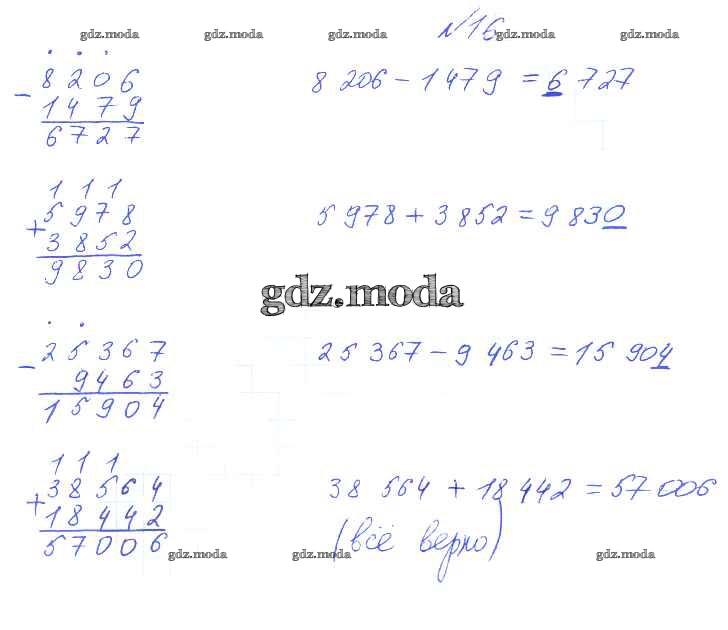 gdz.moda gdz.moda gdz.moda gdz.moda gdz.moda
№16
8206
- 1479
6727
8 206 – 1 479 = 6 727
1 1 1
5978
+ 3852
9830
5 978 + 3 852 = 9 830
gdz.moda
25367
- 9463
15904
25 367 – 9 463 = 15 904
1 1 1
38564
+ 18442
57006
38 564 + 18 442 = 57 006
(всё верно)
gdz.moda gdz.moda gdz.moda gdz.moda